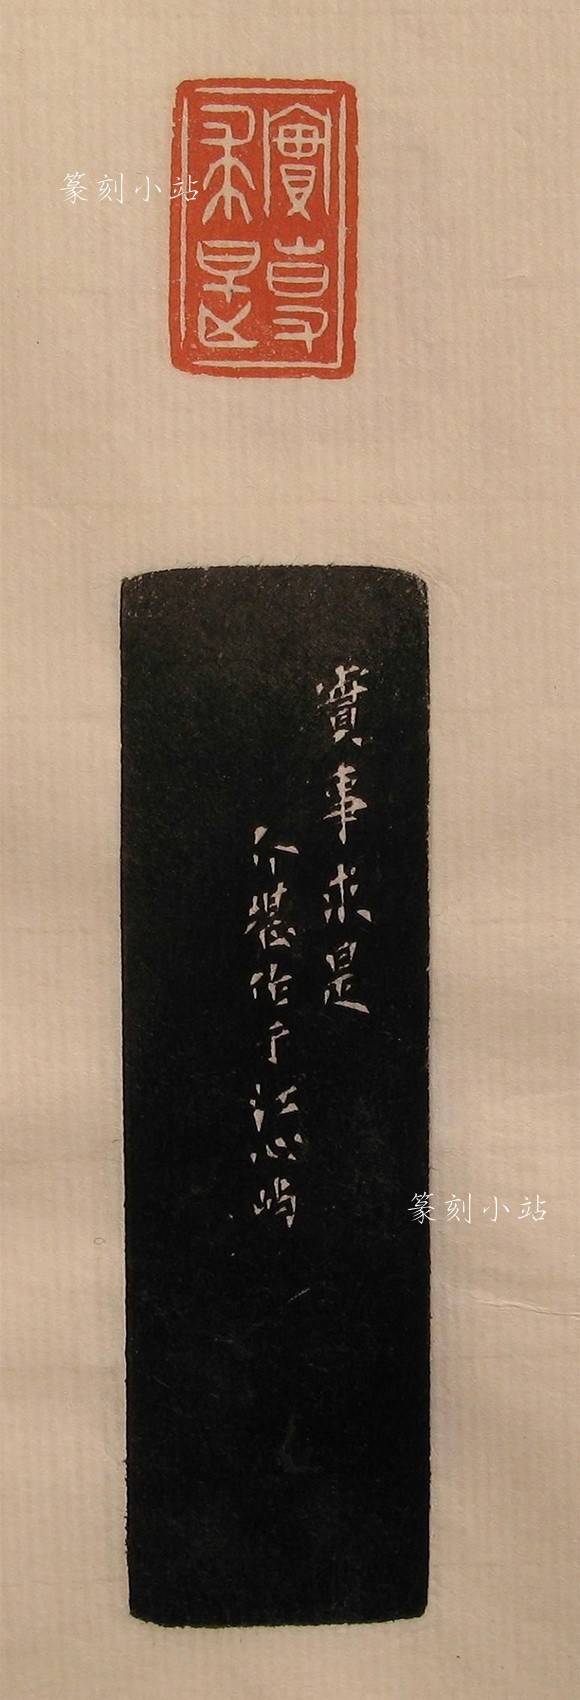 實事求是
篆刻小站
實事求是
介堪作于江心屿
篆刻小站